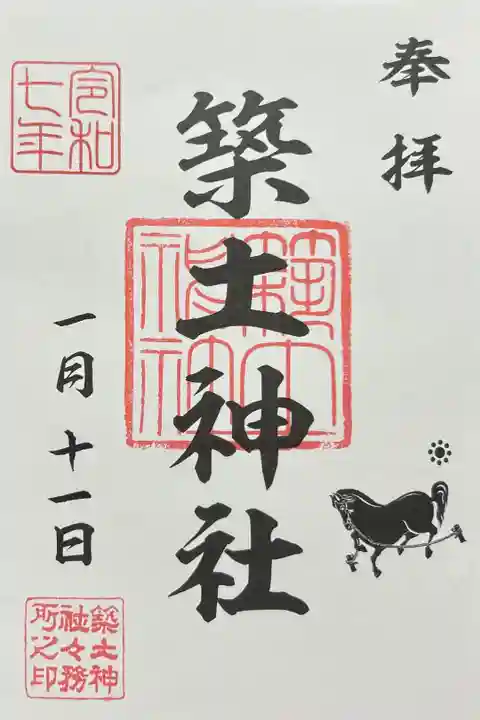 奉拝
築土神社
築土神社
令和
七年
一月十一日
築土神
社々務
所之印